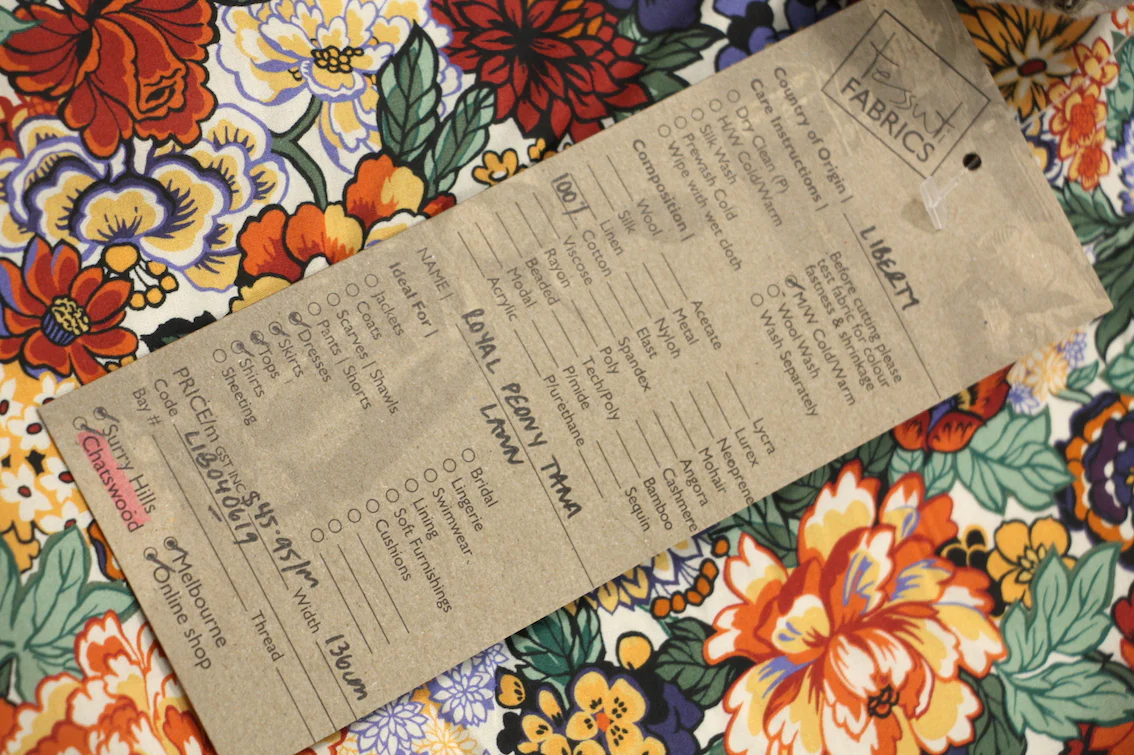 Tessuti
FABRICS
Country of Origin | LIBERTY
Care Instructions |
Dry Clean (P)
H/W Cold/Warm
Silk Wash
Prewash Cold
Wipe with wet cloth
Before cutting please
test fabric for colour
fastness & shrinkage
M/W Cold/Warm
Wool Wash
Wash Separately
Composition |
Wool
Silk
Linen
100% Cotton
Viscose
Rayon
Beaded
Modal
Acrylic
Acetate
Metal
Nylon
Elast
Spandex
Poly
Tech/Poly
P/mide
P/urethane
Lycra
Lurex
Neoprene
Mohair
Angora
Cashmere
Bamboo
Sequin
NAME | ROYAL PEONY TANA
LAWN
Ideal For |
Jackets
Coats
Scarves | Shawls
Pants | Shorts
Dresses
Skirts
Tops
Shirts
Sheeting
Bridal
Lingerie
Swimwear
Lining
Soft Furnishings
Cushions
PRICE/m GST INC $45.95/m Width 136cm
Code LIB040619
Bay # Thread
Surry Hills
Chatswood
Melbourne
Online shop